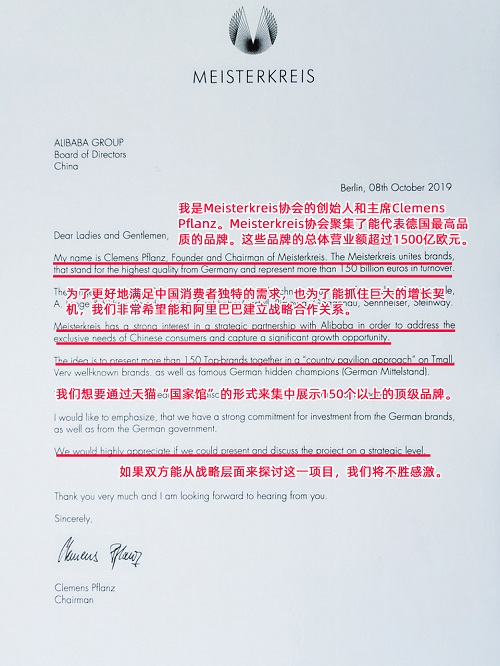 MEISTERKREIS
ALIBABA GROUP
Board of Directors
China
Berlin, 08th October 2019
我是Meisterkreis协会的创始人和主席Clemens
Pflanz。Meisterkreis协会聚集了能代表德国最高品
质的品牌。这些品牌的总体营业额超过1500亿欧元。
Dear Ladies and Gentlemen,
My name is Clemens Pflanz, Founder and Chairman of Meisterkreis. The Meisterkreis unites brands,
that stand for the highest quality from Germany and represent more than 150 billion euros in turnover.
为了更好地满足中国消费者独特的需求，也为了能抓住巨大的增长契
机，我们非常希望能和阿里巴巴建立战略合作关系。
Sennheiser, Steinway.
Meisterkreis has a strong interest in a strategic partnership with Alibaba in order to address the
exclusive needs of Chinese consumers and capture a significant growth opportunity.
The idea is to present more than 150 Top-brands together in a “country pavilion approach” on Tmall.
Very well-known brands, as well as famous German hidden champions (German Mittelstand).
我们想要通过天猫“国家馆”的形式来集中展示150个以上的顶级品牌。
I would like to emphasize, that we have a strong commitment for investment from the German brands,
as well as from the German government.
We would highly appreciate if we could present and discuss the project on a strategic level.
如果双方能从战略层面来探讨这一项目，我们将不胜感激。
Thank you very much and I am looking forward to hearing from you.
Sincerely,
Clemens Pflanz
Clemens Pflanz
Chairman